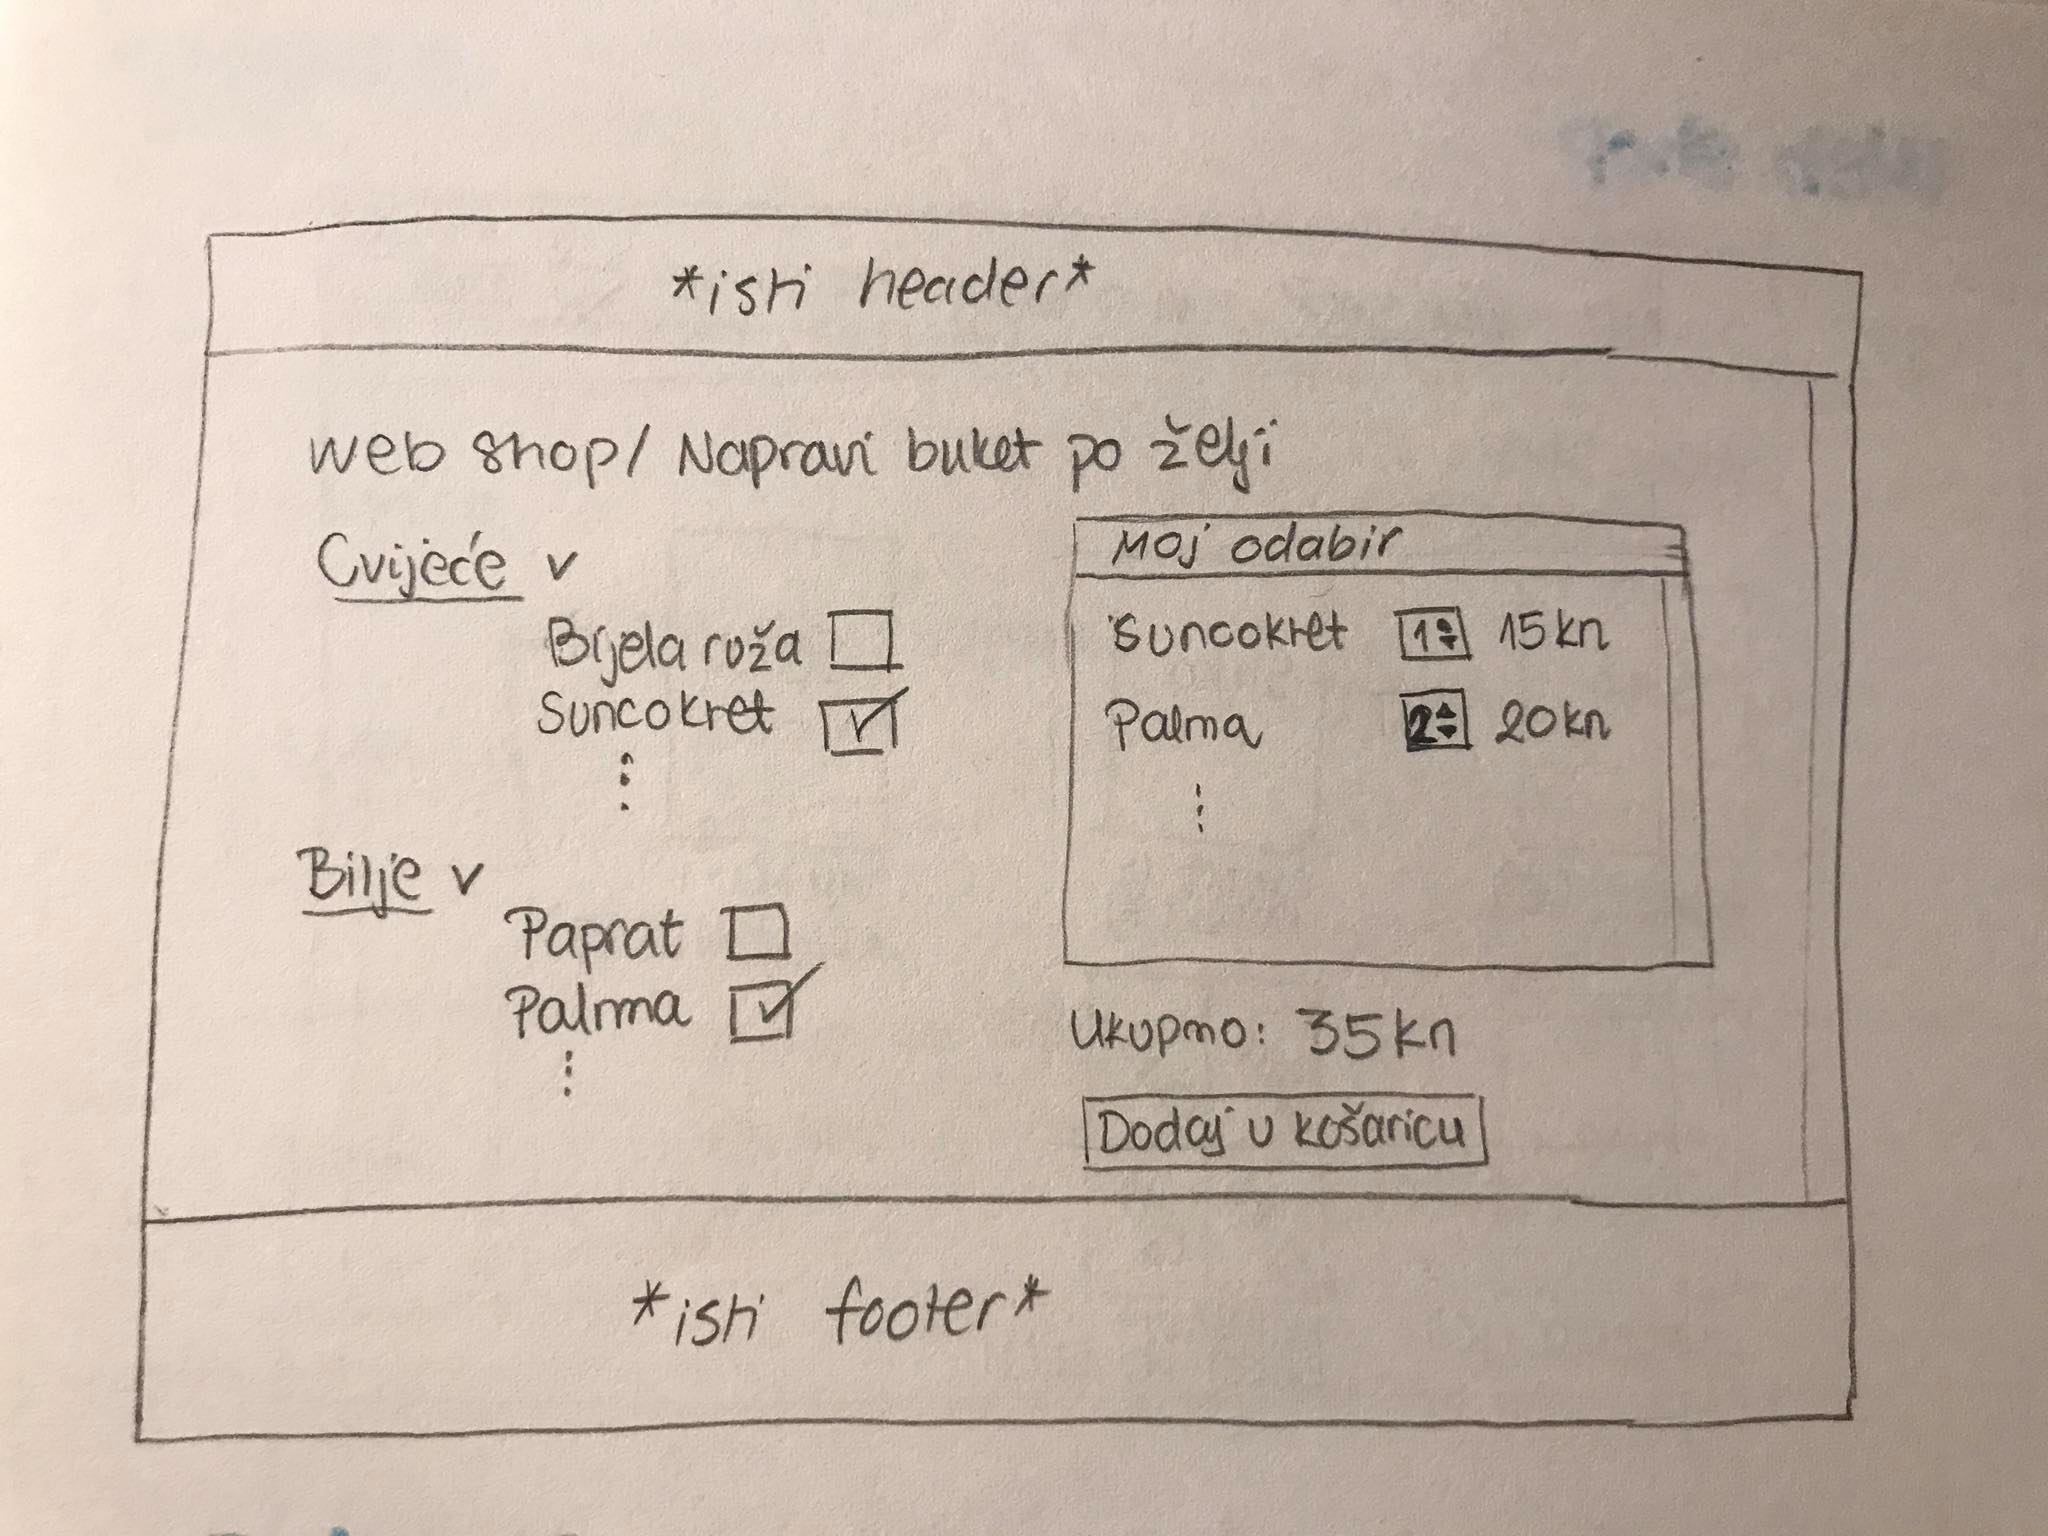 *isti header*
web shop/ Napravi buket po želji
Cvijeće v
Bijela ruža
Suncokret
Bilje v
Paprat
Palma
Moj odabir
Suncokret 1 15kn
Palma 2 20kn
Ukupno: 35kn
Dodaj u košaricu
*isti footer*